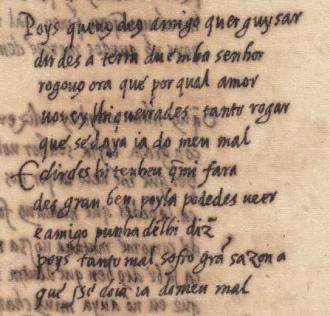 Poys queu9 deg amigo quer guysar
dirdes a terra du e mha senhor
rogou9 ora que por qual amor
uos ey lhi queirades tanto rogar
que se doya ia do meu mal
E dirdes hi tenheu q̄ mi fara
deg gran ben poyla podedes ueer
e amigo punha delhi diz̃
poys tanto mal sofro grã sazon a
que sse doia ia do meu mal